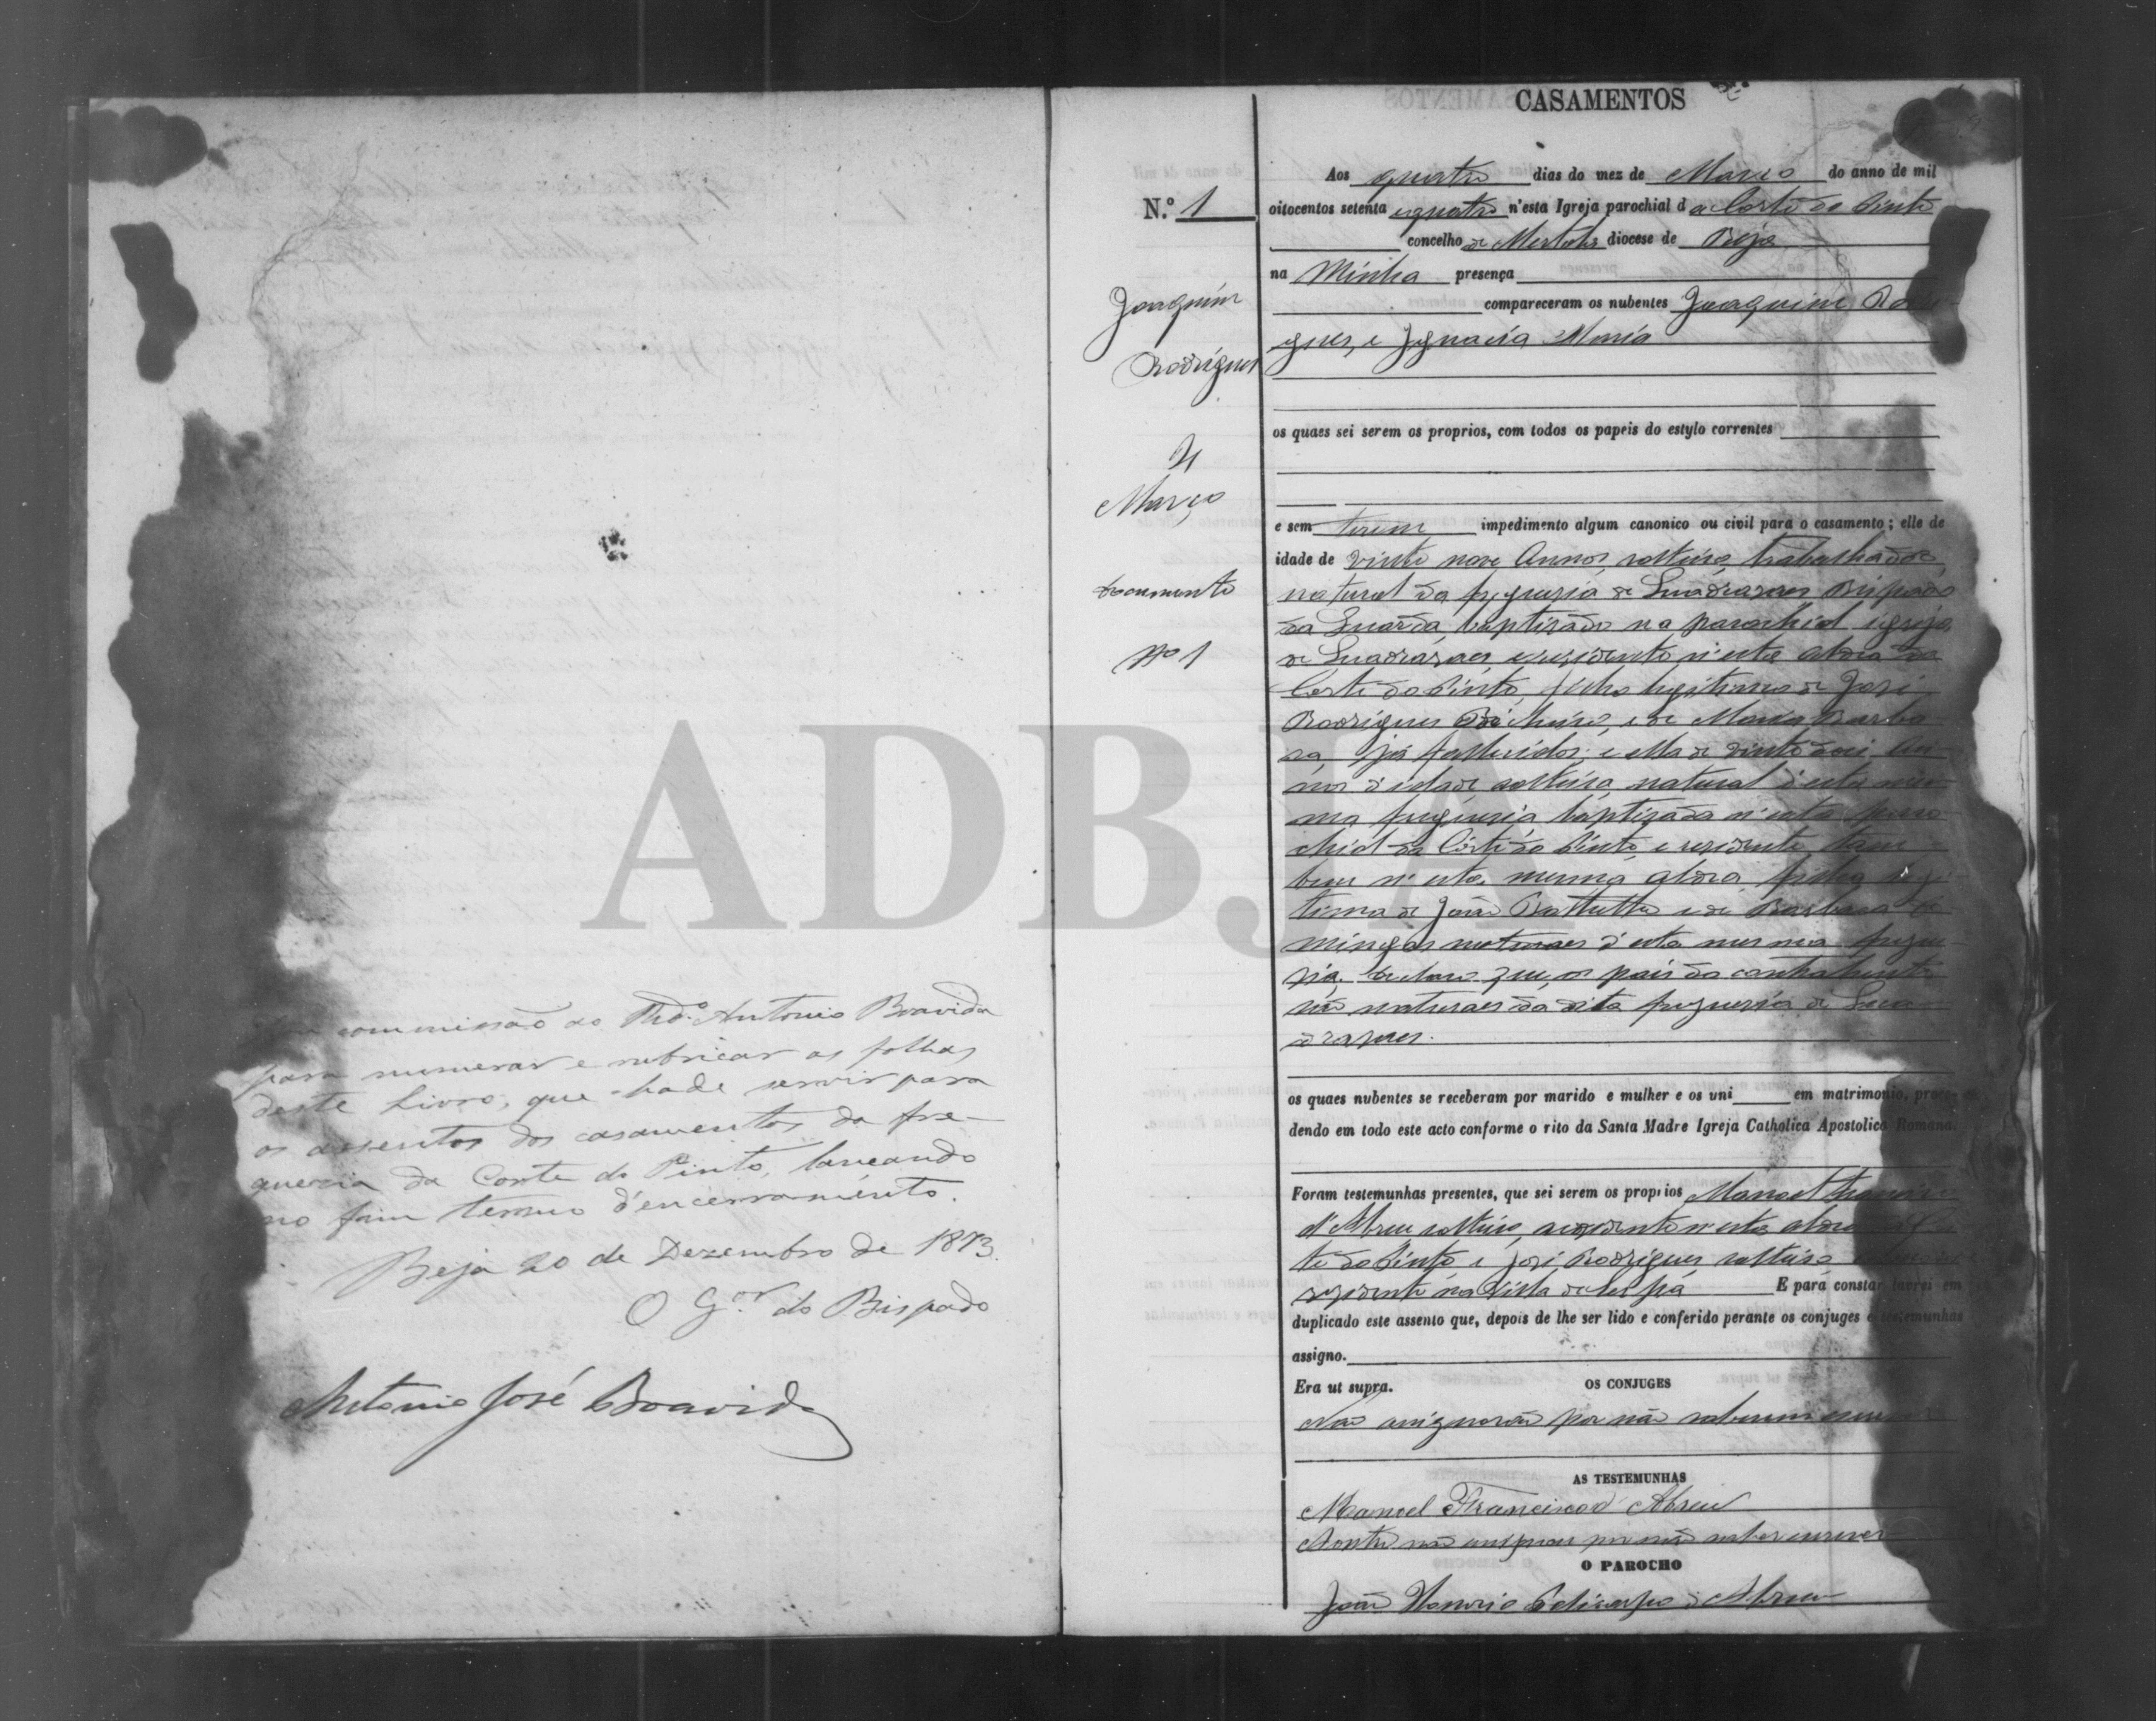 commissão ao Rdo. Antonio Boavida
para numerar e rubricar as folhas
deste Livro, que hade servir para
os assentos dos casamentos da fre-
guezia da Corte do Pinto, lançando
no fim termo d'encerramento.
Beja 20 de Dezembro de 1873.
O G.or do Bispado
Antonio José Boavida
CASAMENTOS
N.º 1
Joaquim
Rodrigues
4
Março
Documento
Nº 1
Aos quatro dias do mez de Março do anno de mil
oitocentos setenta e quatro n'esta Igreja parochial da Corte do Pinto
concelho de Mertola diocese de Beja
na Minha presença
compareceram os nubentes Joaquim Rodri-
gues, e Ignacia Maria
os quaes sei serem os proprios, com todos os papeis do estylo correntes
e sem terem impedimento algum canonico ou civil para o casamento; elle de
idade de vinte nove Annos, solteiro, trabalhador,
natural da freguesia de Quadrazaes Bispado
da Guarda, baptisado na parochial igreja
de Quadrazaes, e residente n'esta aldea da
Corte do Pinto, filho legitimo de José
Rodrigues e de Maria Barbo
ra, já fallecidos; e ella de vinte dois An-
nos d'idade, solteira, natural d'esta mes-
ma freguesia baptisada n'esta paro-
chial da Côrte do Pinto, e residente tam-
bem n'esta mesma aldea, filha legi-
tima de João e de Barbara Do
mingas naturaes d'esta mesma fregue-
sia, declaro que, os pais do contrahente
são naturaes da dita freguesia de Qua-
drazaes.
os quaes nubentes se receberam por marido e mulher e os uni em matrimonio, proce-
dendo em todo este acto conforme o rito da Santa Madre Igreja Catholica Apostolica Romana.
Foram testemunhas presentes, que sei serem os proprios Manoel Francisco
d'Abreu solteiro, residente n'esta aldea da Cor
te do Pinto e José Rodrigues solteiro
residente na Villa de Serpa E para constar lavrei em
duplicado este assento que, depois de lhe ser lido e conferido perante os conjuges e testemunhas
assigno.
Era ut supra.
OS CONJUGES
Não assignarão por não saberem escrever
AS TESTEMUNHAS
Manoel Francisco d'Abreu
A outra não assignou por não saber escrever
O PAROCHO
João Honorio d'Abreu
ADBJA